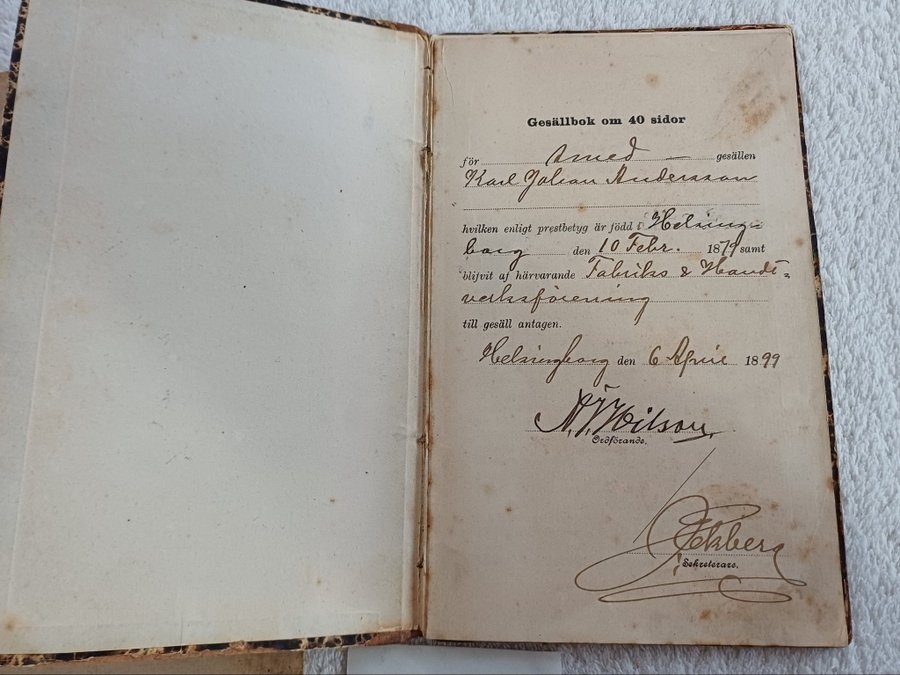 Gesällbok om 40 sidor
för Smed gesällen
Karl Johan Andersson
hvilken enligt prestbetyg är född i Helsing-
borg den 10 Febr. 1879 samt
blifvit af härvarande Fabriks & Handt-
verksförening
till gesäll antagen.
Helsingborg den 6 April 1899
Ordförande.
Ekberg
Sekreterare.